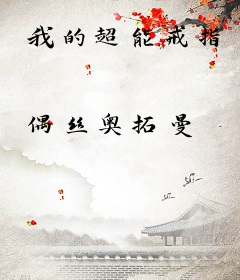 我的超能戒指
偶丝奥拓曼